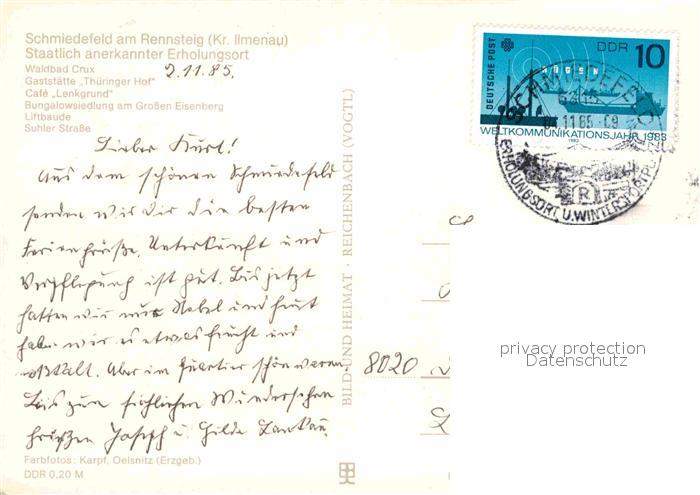 Schmiedefeld am Rennsteig (Kr. Ilmenau)
Staatlich anerkannter Erholungsort
Waldbad Crux
Gaststätte „Thüringer Hof"
Café „Lenkgrund"
Bungalowsiedlung am Großen Eisenberg
Liftbaude
Suhler Straße
2.11.85.
Lieber Kurt!
Aus dem schönen Schmiedefeld
senden wir dir die besten
Feriengrüße. Unterkunft und
Verpflegung ist gut. Bis jetzt
hatten wir nur Nebel und heut
haben wir es etwas feucht und
naßkalt. Aber im Quartier schön warm.
Bis zum fröhlichen Wiedersehen
grüßen Joseph u. Hilde
Farbfotos: Karpf, Oelsnitz (Erzgeb.)
DDR 0,20 M
BILD UND HEIMAT · REICHENBACH (VOGTL)
DEUTSCHE POST
DDR 10
RÜGEN
WELTKOMMUNIKATIONSJAHR 1983
1983
SCHMIEDEFELD
04.11.85
ERHOLUNGSORT U. WINTERSPORTPLATZ
R
8020
privacy protection
Datenschutz